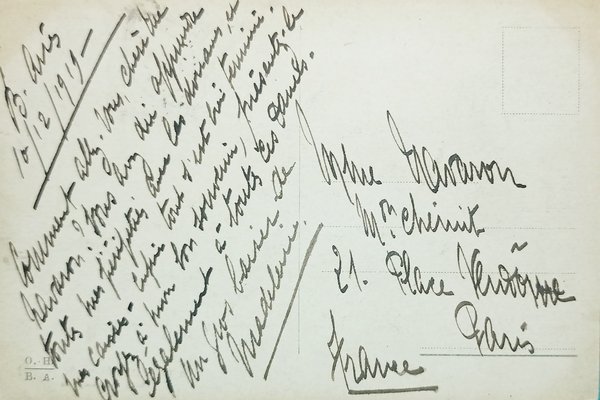 B. Aires
10/12/1919 -
Comment allez vous, chère Mme
Navaron? Vous avez dû apprendre
toutes mes péripéties avec les douanes, et
mes caisses - enfin tout s'est bien terminé.
Croyez à mon bon souvenir, présentez-le
également à toutes ces dames.
Un gros baiser de
Madeleine.
Mme Navaron
Mon Chéruit
21. Place Vendôme
Paris
France
O. H.
B. A.